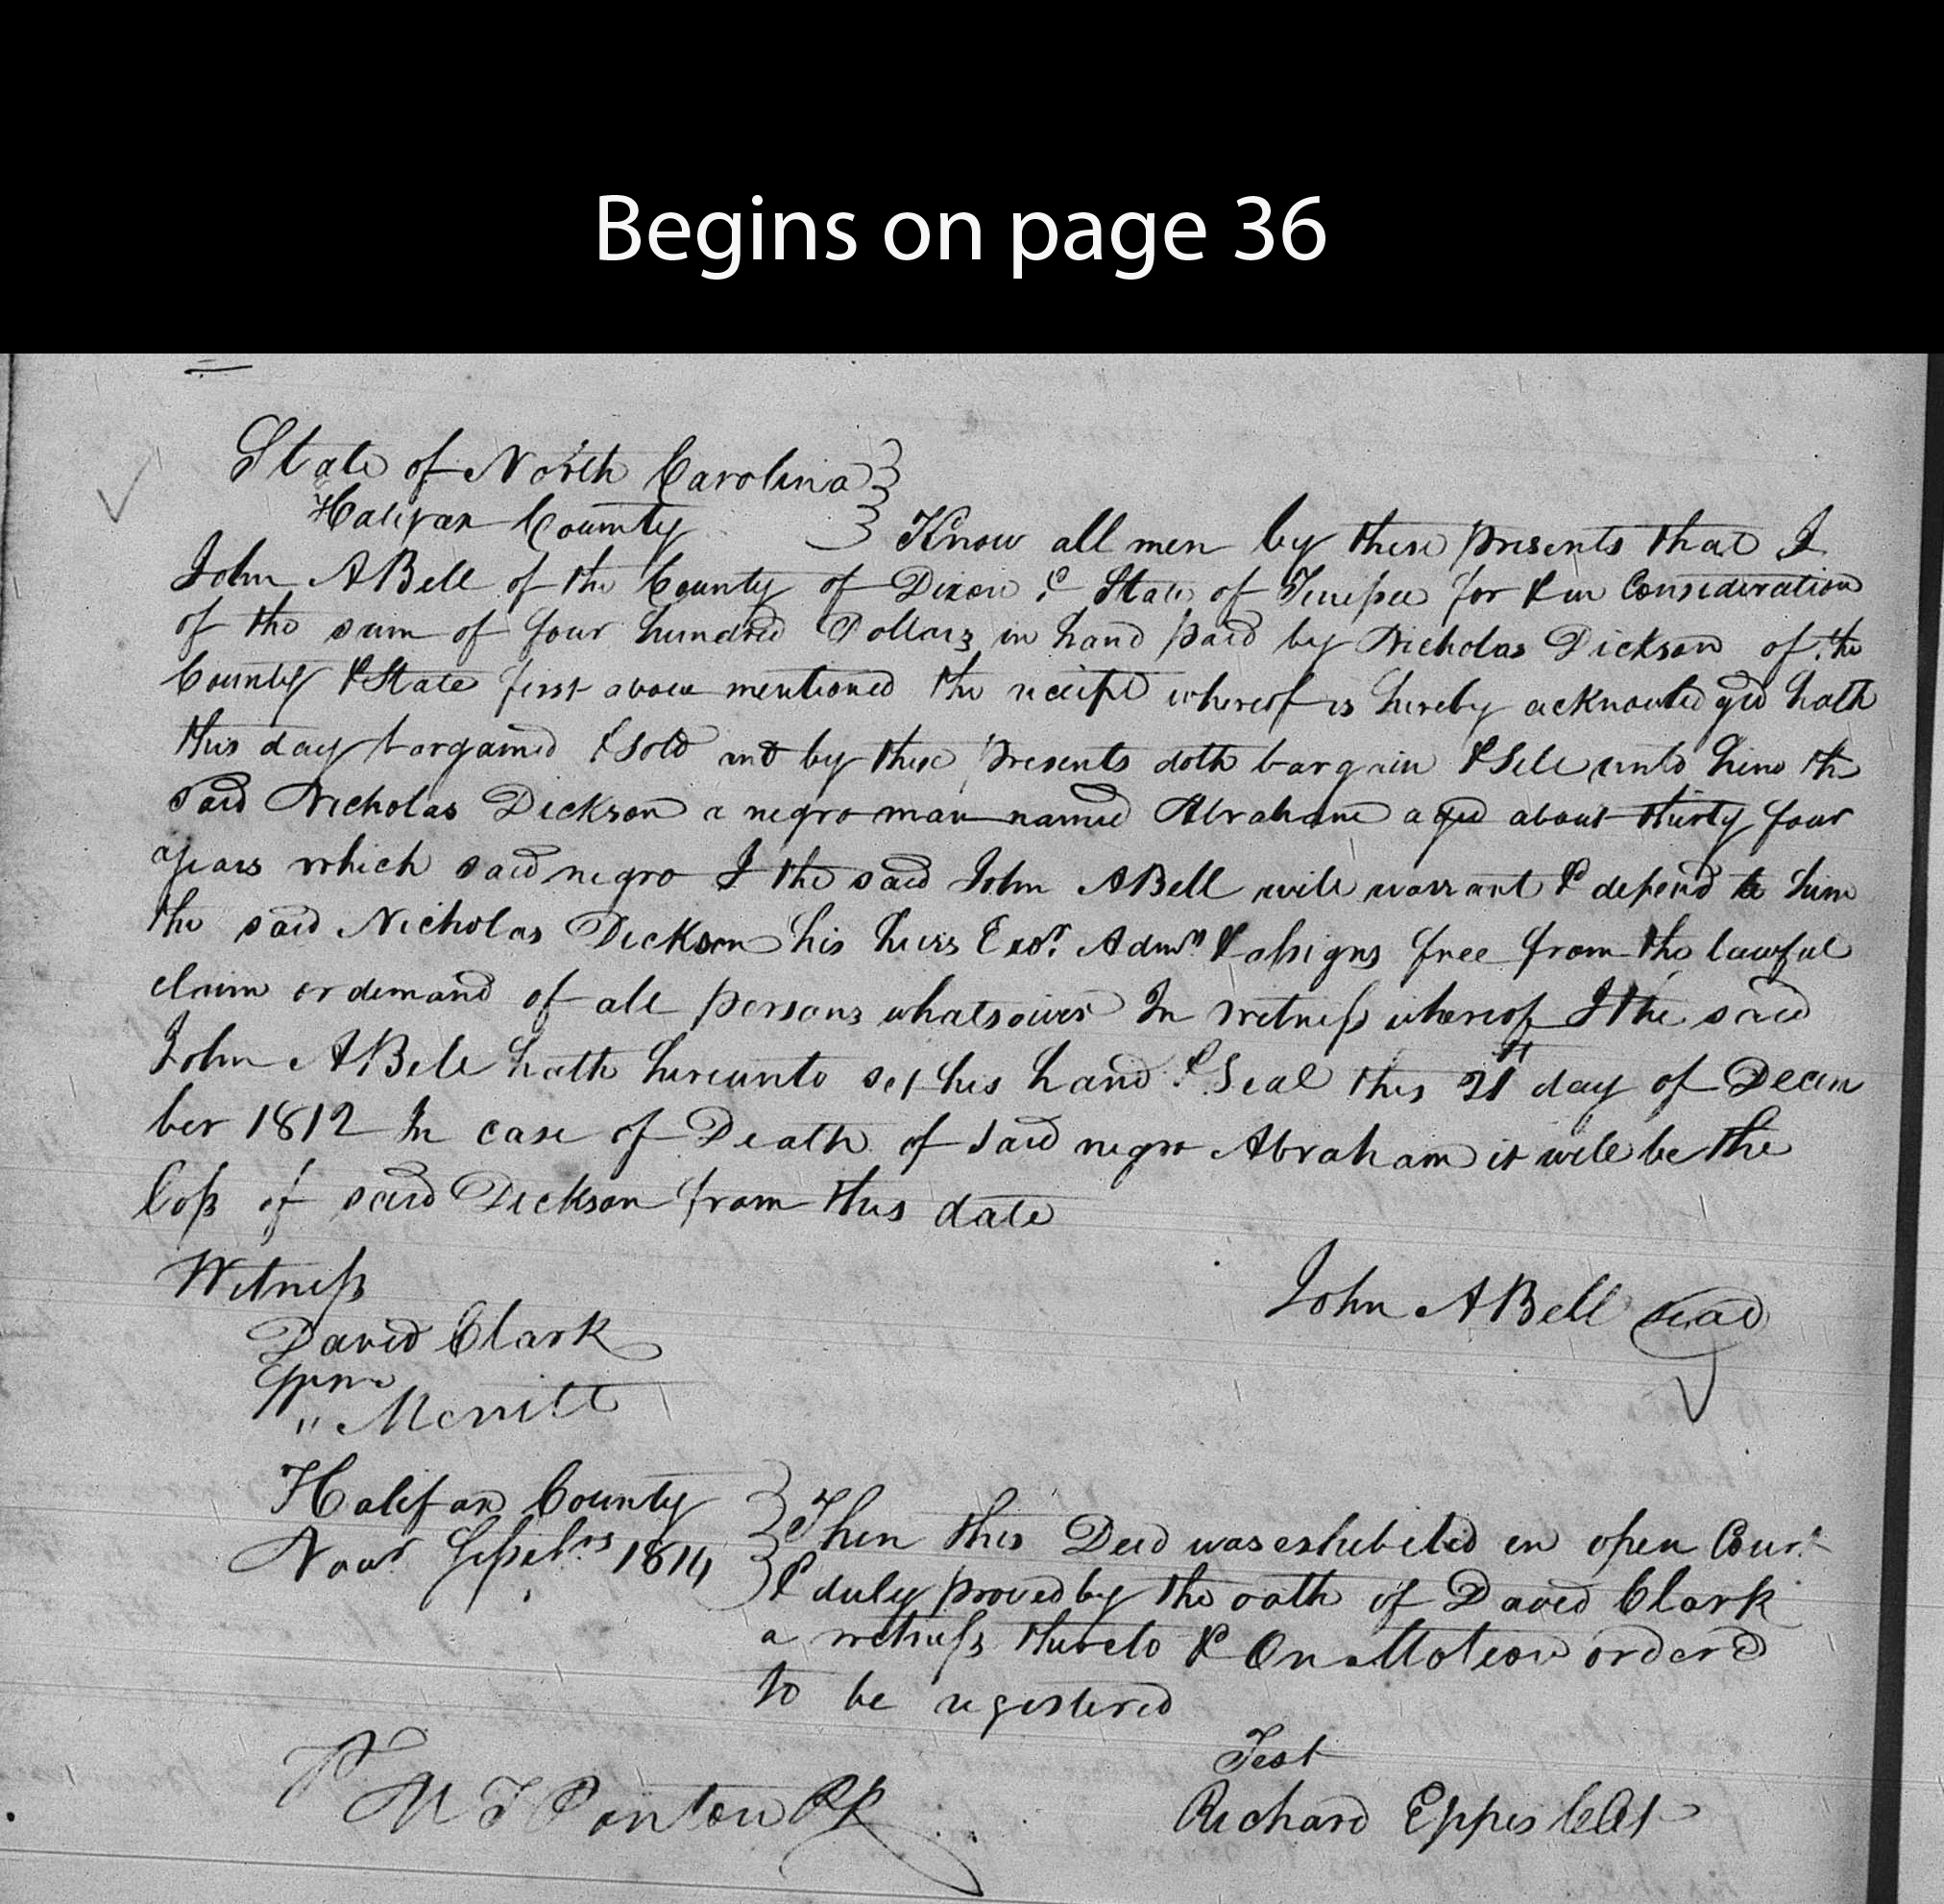 Begins on page 36
State of North Carolina
Halifax County Know all men by these presents that I
John A Bell of the County of Dixon & State of Tenessee for & in Consideration
of the sum of four hundred Dollars in hand paid by Nicholas Dickson of the
County & State first above mentioned the receipt whereof is hereby acknowledged hath
this day bargained & sold and by these presents doth bargain & Sell unto him the
said Nicholas Dickson a negro man named Abraham aged about thirty four
years which said negro I the said John A Bell will warrant & defend to him
the said Nicholas Dickson his heirs Exors. Admrs. & assigns free from the lawful
claim or demand of all persons whatsoever In witness whereof I the said
John A Bell hath hereunto set his hand & Seal this 21st day of Decem
ber 1812 In case of Death of said negro Abraham it will be the
loss of said Dickson from this date
Witness
John A Bell seal
David Clark
" Merritt
Halifax County
Novr Sessions 1814
Then this Deed was exhibited in open Court
& duly proved by the oath of David Clark
a witness thereto & On Motion orderd
to be registered
Test
M T Ponton PR
Richard Eppes Clk